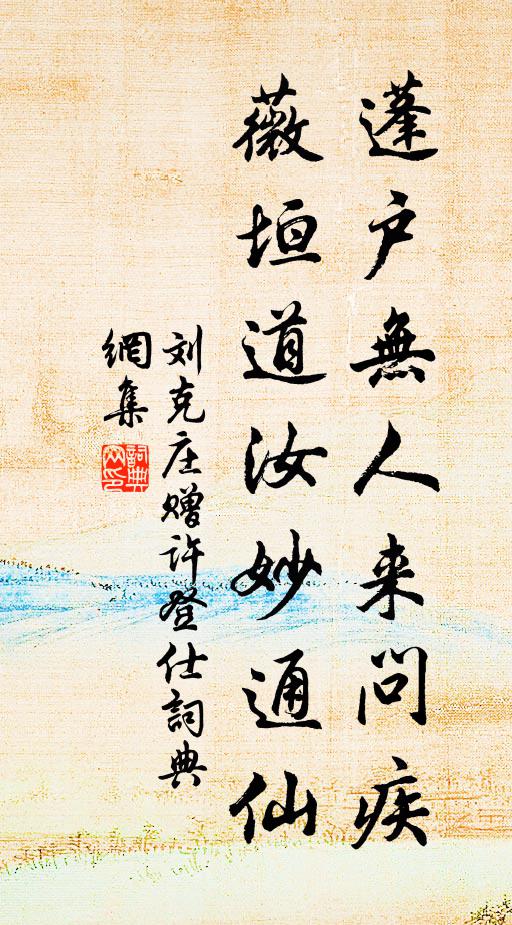 蓬户無人来問疾
薇垣道汝妙通仙
刘克庄赠许登仕詞典
網集
詞典
网印